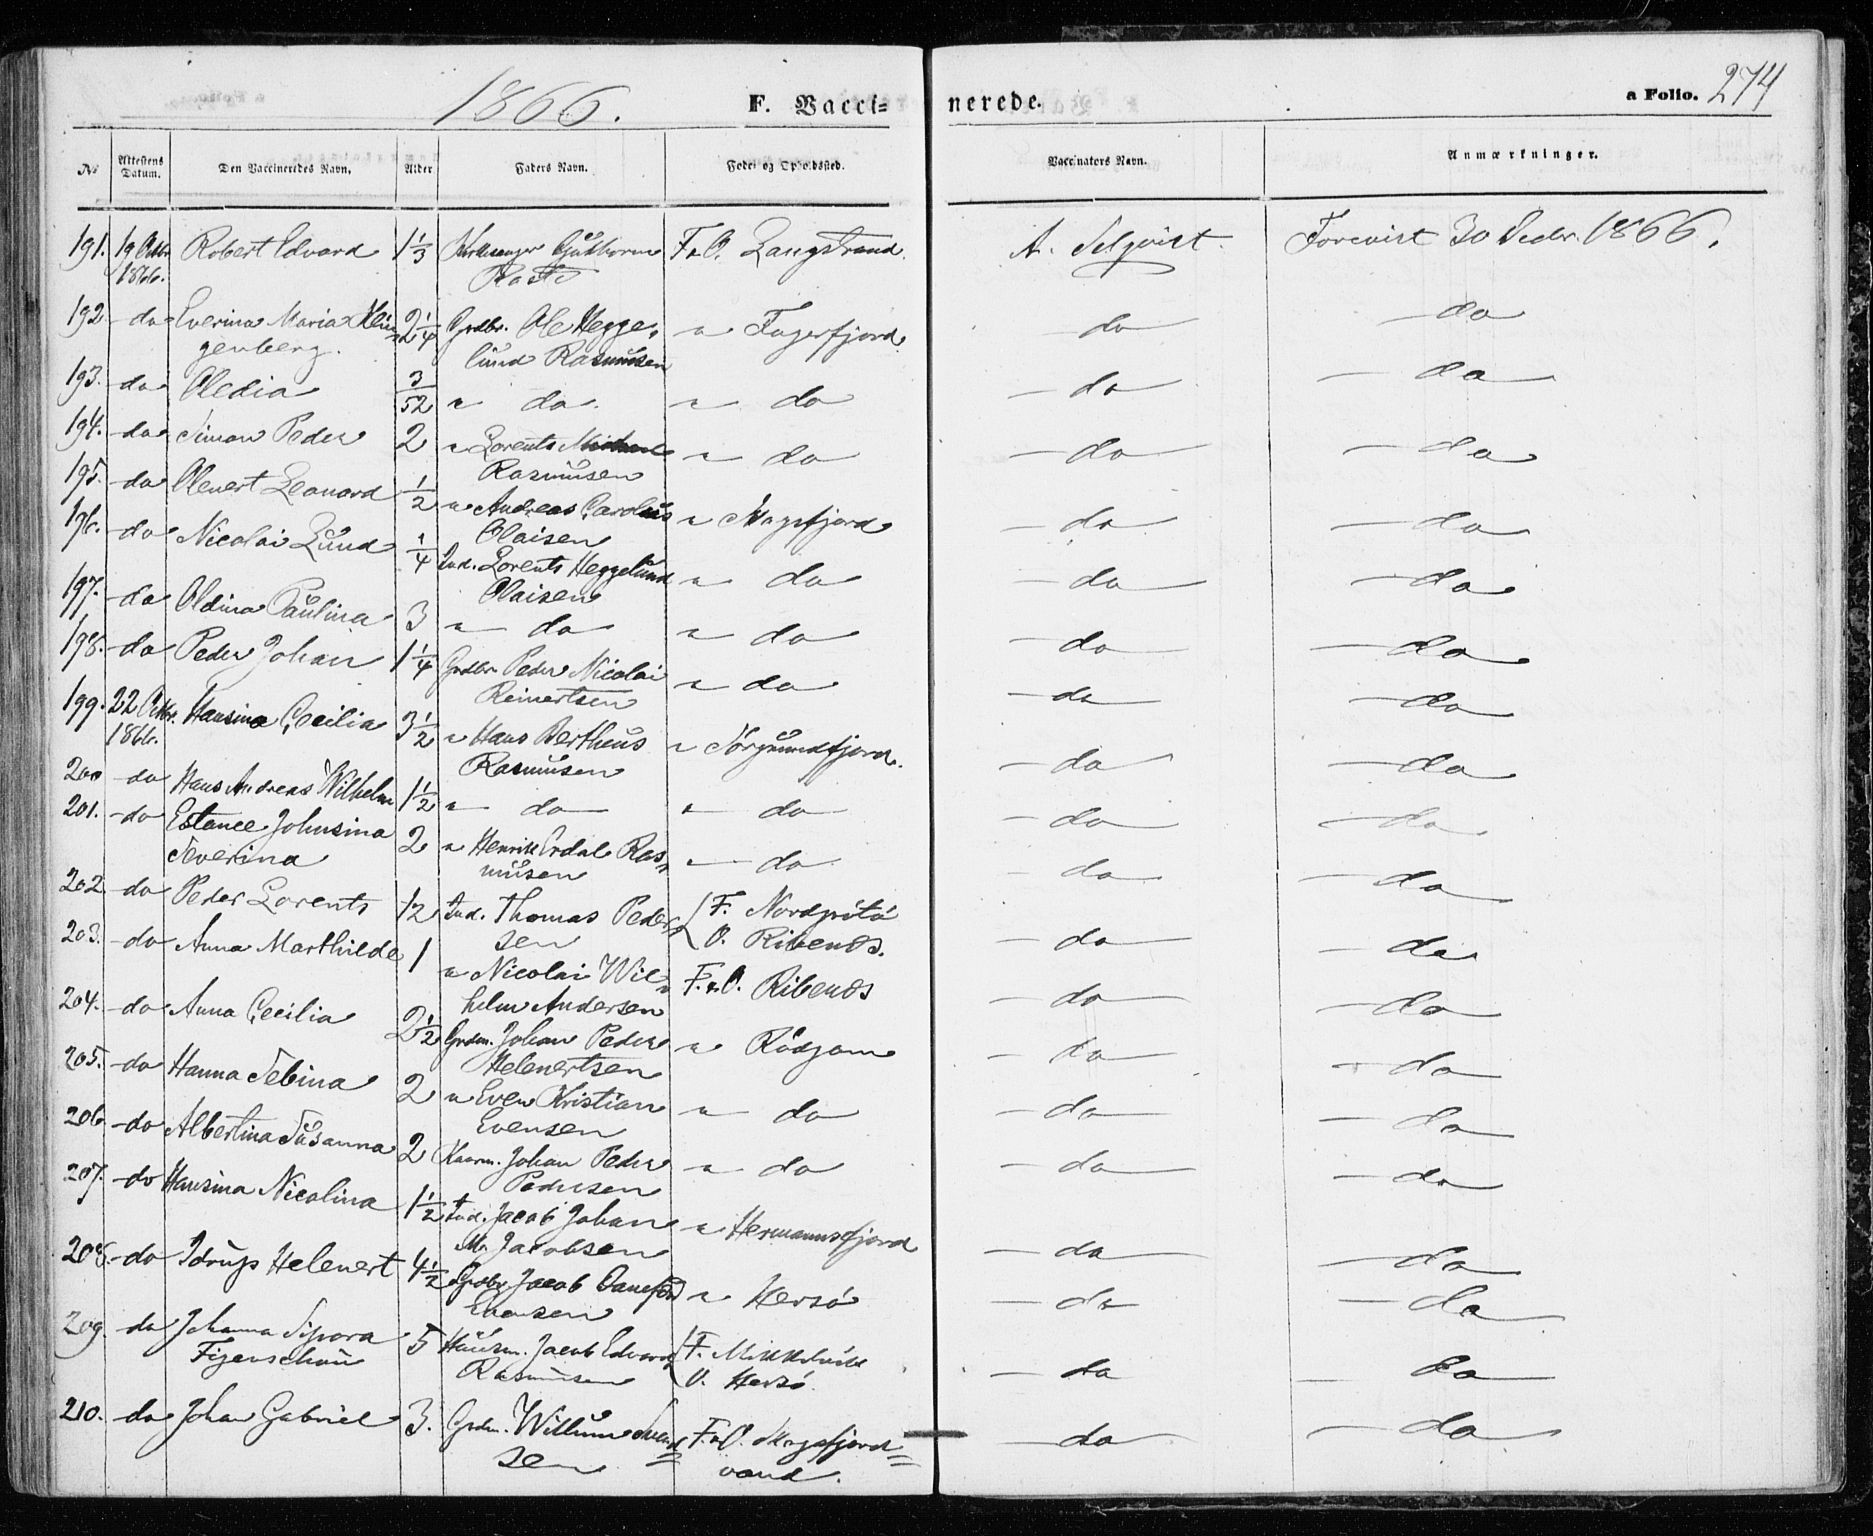 1866. F. Vaccinerede. a Folio. 274
No Attestens Datum. Den Vaccineredes Navn. Alder Faders Navn. Føde- og Opholdssted. Vaccinators Navn. Anmærkninger.
191. 19 Octbr. Robert Edvard 1 1/3 Kirkesanger Guthorm F. & O. Langstrand. A. Selqvist. Forevist 30 Decbr. 1866.
1866. Rasto
192 - do Everina Maria Klin= 2 1/4 Grdbr. Ole Hegge= " Fugerfjord. - do - - do
genberg. lund Rasmusen
193. - do Oledia 3/52 " do. " do - do - - do -
194. - do Simon Peder 2 " Lorents " do - do - - do
Rasmusen
195. - do Olenert Leonard 1/2 " Andreas Carolus " Magsfjord - do - - do
Olaisen
196. - do Nicolai Lund 1/4 Ind. Lorents Heggelund " do - do - - do
Olaisen
197. - do Oldina Paulina 3 " do " do - do - - do
198. - do Peder Johan 1 1/4 Grdbr. Peder Nicolai " do - do - - do
Reinertsen
199. 22 Octbr. Hansine Cecilia 3 1/2 " Hans Bertheus " Sørgundfjord. - do - - do
1866. Rasmusen
200 - do Hans Andreas Wilhelm 1 1/2 " do " do - do - - do
201. - do Estance Johnsina 2 " Henrik Erdal Ras= " do - do - - do
Severina musen
202. - do Peder Lorents 1/2 Ind. Thomas Peder= F. Nordgrötö - do - - do
sen O. Ribenæs.
203. - do Anna Marthilde 1 " Nicolai Wil= F. & O. Ribenæs - do - - do
helm Andersen
204. - do Anna Cecilia 2 1/2 Grdm. Johan Peder " Rödgam - do - - do
Helenertsen
205. - do Hanna Sebina 2 " Even Kristian " do - do - - do
Evensen
206. - do Albertina Susanna 2 Johan Peder " do - do - - do
Pedersen
207. - do Hansina Nicolina 1 1/2 Ind. Jacob Johan " Hermannsfjord - do - - do
M. Jacobsen
208. - do Idrup Helenert 4 1/2 Grdbr. Jacob " Hersö - do - - do -
Evensen
209. - do Johanna Sipora 5 Husm. Jacob Edvard F. Mikkelvik - do - do
Figenschou Rasmusen O. Hersö.
210. - do Johan Gabriel 3. Grdm. Willum Svend= F. & O. Magsfjord= - do - - do
sen vand.